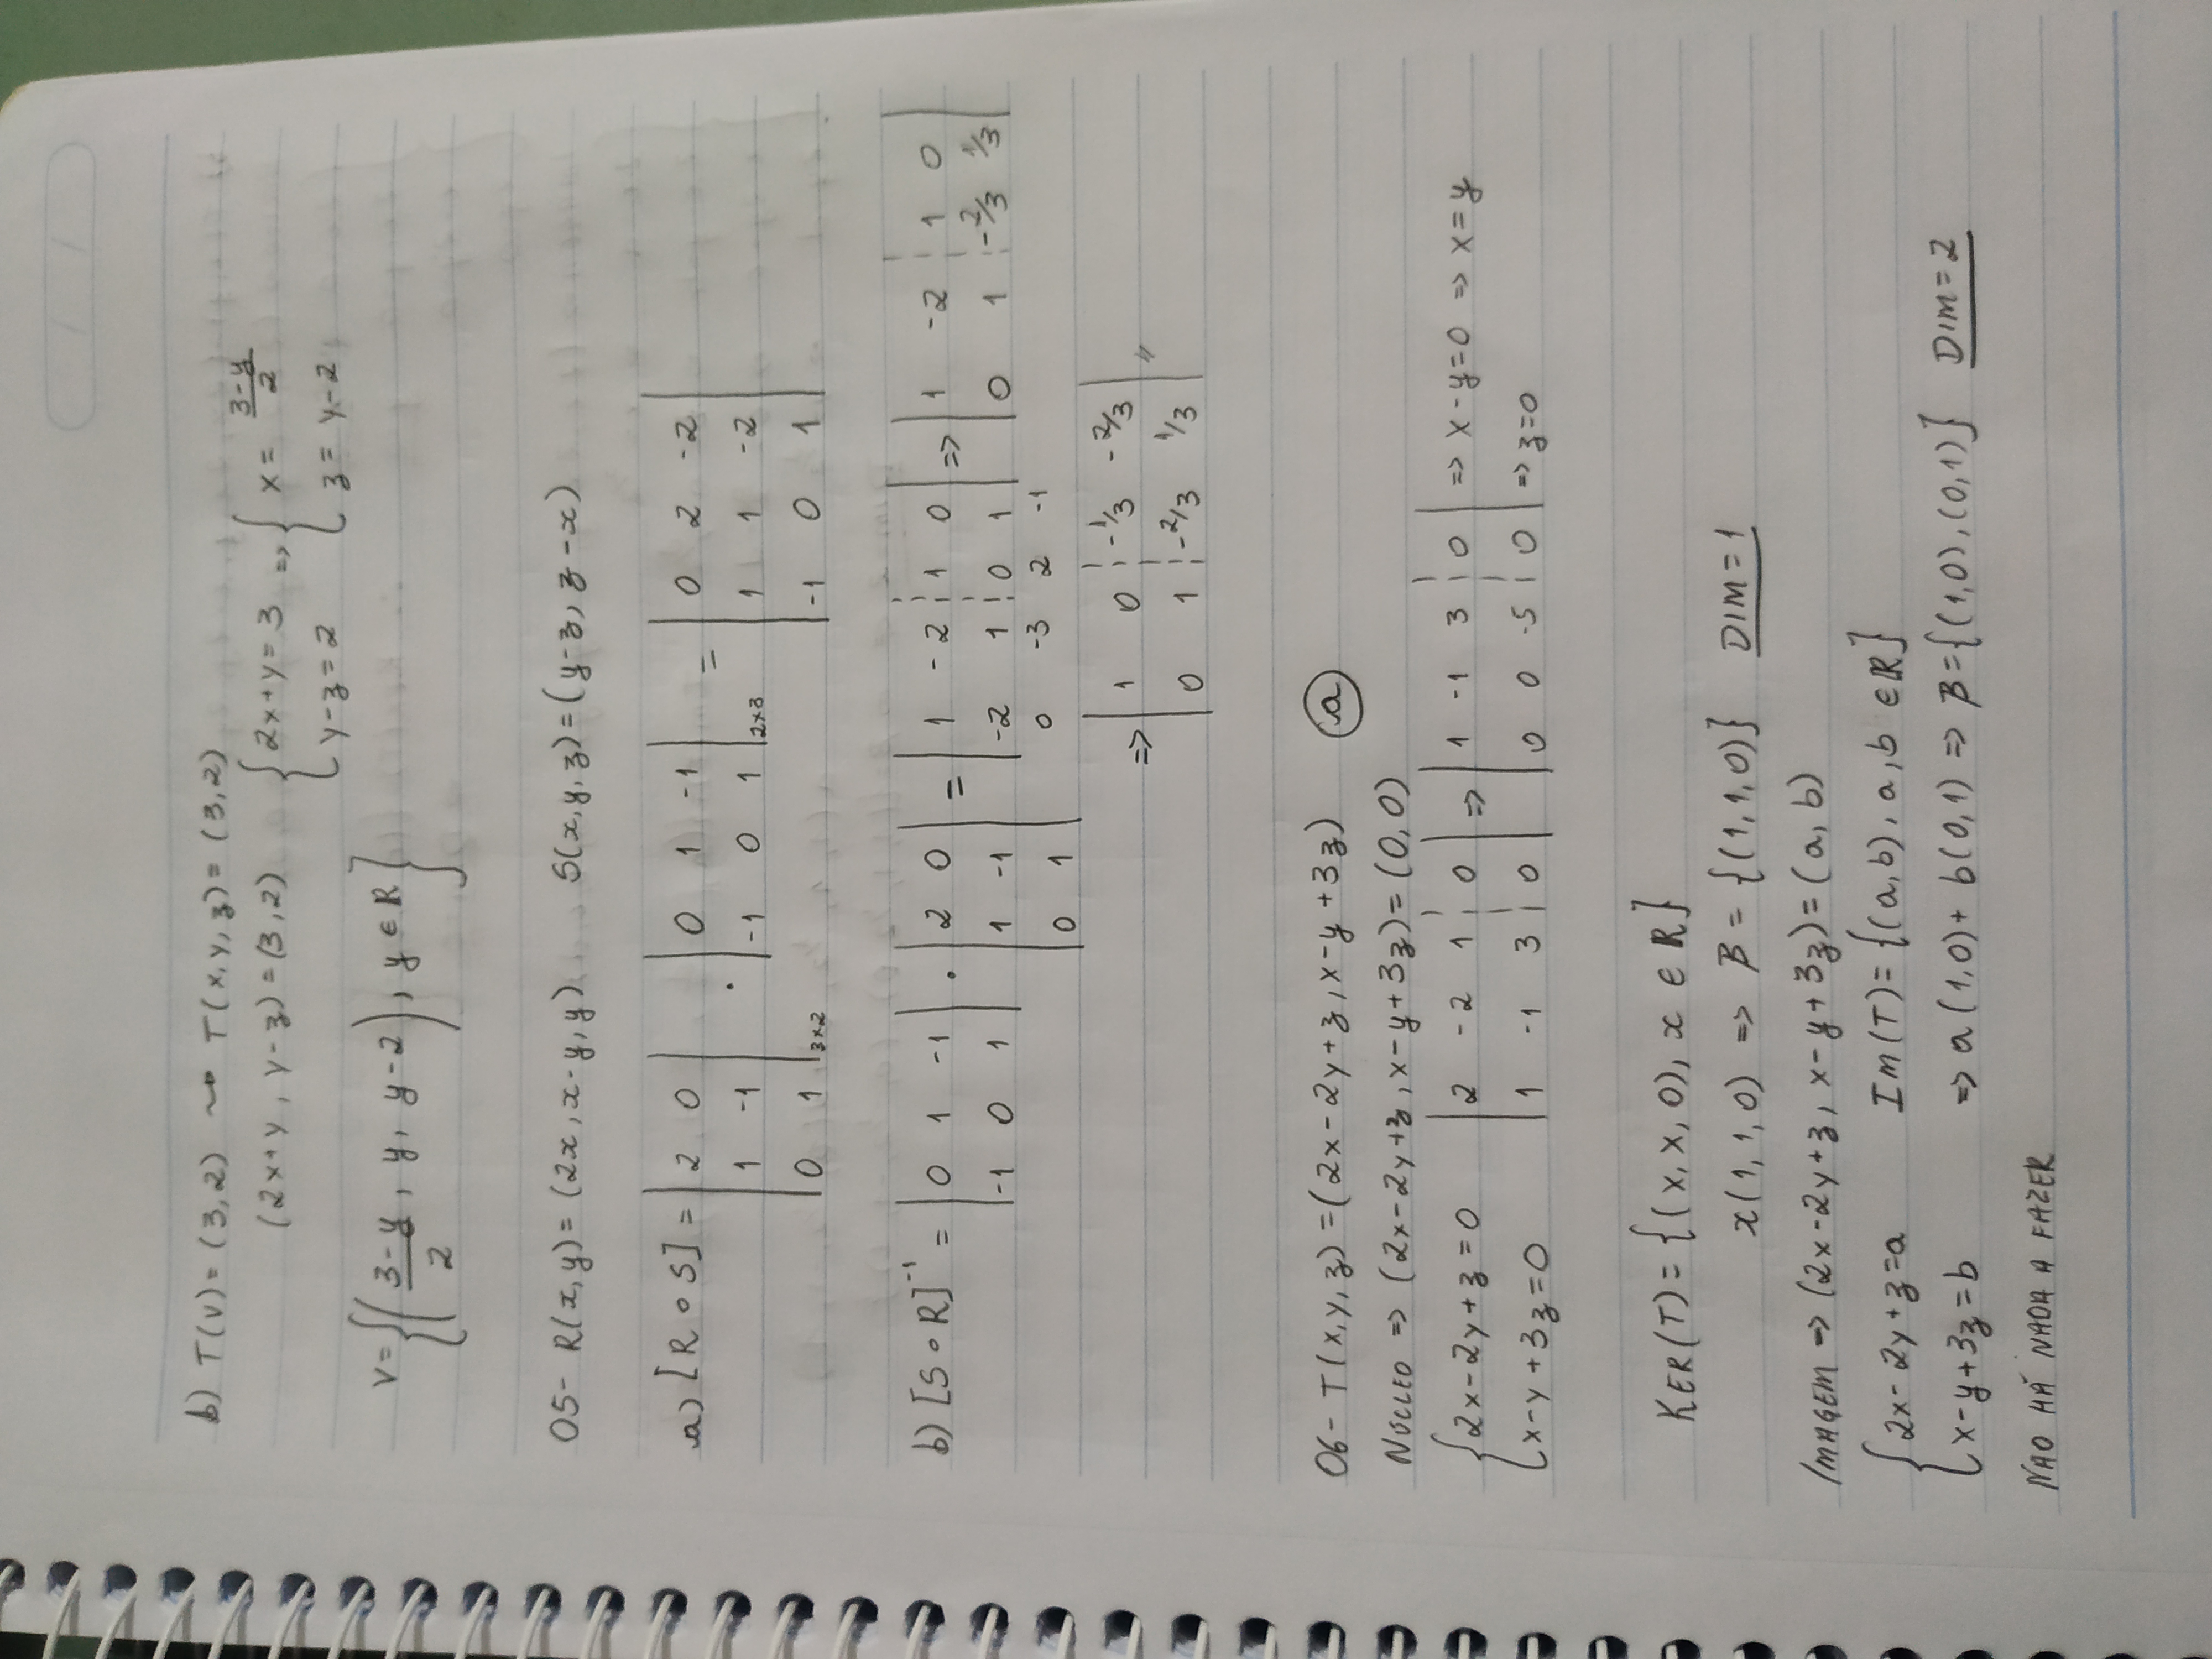 b) T(V) = (3,2) ⇝ T(x, y, z) = (3,2)
(2x+y, y-z) = (3,2) { 2x+y = 3 ⇒ { x = 3-y/2
y-z = 2 z = y-2
V = {(3-y/2, y, y-2), y ∈ ℝ}
05- R(x,y) = (2x, x-y, y) S(x,y,z) = (y-z, z-x)
a) [R ∘ S] = | 2 0 | · | 0 1 -1 | = | 0 2 -2 |
| 1 -1 | | -1 0 1 | 2×3 | 1 1 -2 |
| 0 1 | 3×2 | -1 0 1 |
b) [S ∘ R]⁻¹ = | 0 1 -1 | · | 2 0 | = | 1 -2 ¦ 1 0 | ⇒ | 1 -2 ¦ 1 0 |
| -1 0 1 | | 1 -1 | | -2 1 ¦ 0 1 | | 0 1 ¦ -2/3 1/3 |
| 0 1 | 0 -3 2 -1
⇒ | 1 0 ¦ -1/3 -2/3 | //
| 0 1 ¦ -2/3 1/3 |
06- T(x,y,z) = (2x-2y+z, x-y+3z) a
NÚCLEO ⇒ (2x-2y+z, x-y+3z) = (0,0)
{ 2x-2y+z = 0 | 2 -2 1 ¦ 0 | ⇒ | 1 -1 3 ¦ 0 | ⇒ x-y=0 ⇒ x=y
x-y+3z = 0 | 1 -1 3 ¦ 0 | | 0 0 -5 ¦ 0 | ⇒ z=0
KER(T) = {(x, x, 0), x ∈ ℝ}
x(1,1,0) ⇒ β = {(1,1,0)} DIM=1
IMAGEM ⇒ (2x-2y+z, x-y+3z) = (a, b)
{ 2x-2y+z=a Im(T) = {(a,b), a,b ∈ ℝ}
x-y+3z=b ⇒ a(1,0)+ b(0,1) ⇒ β={(1,0),(0,1)} DIM=2
NÃO HÁ NADA A FAZER